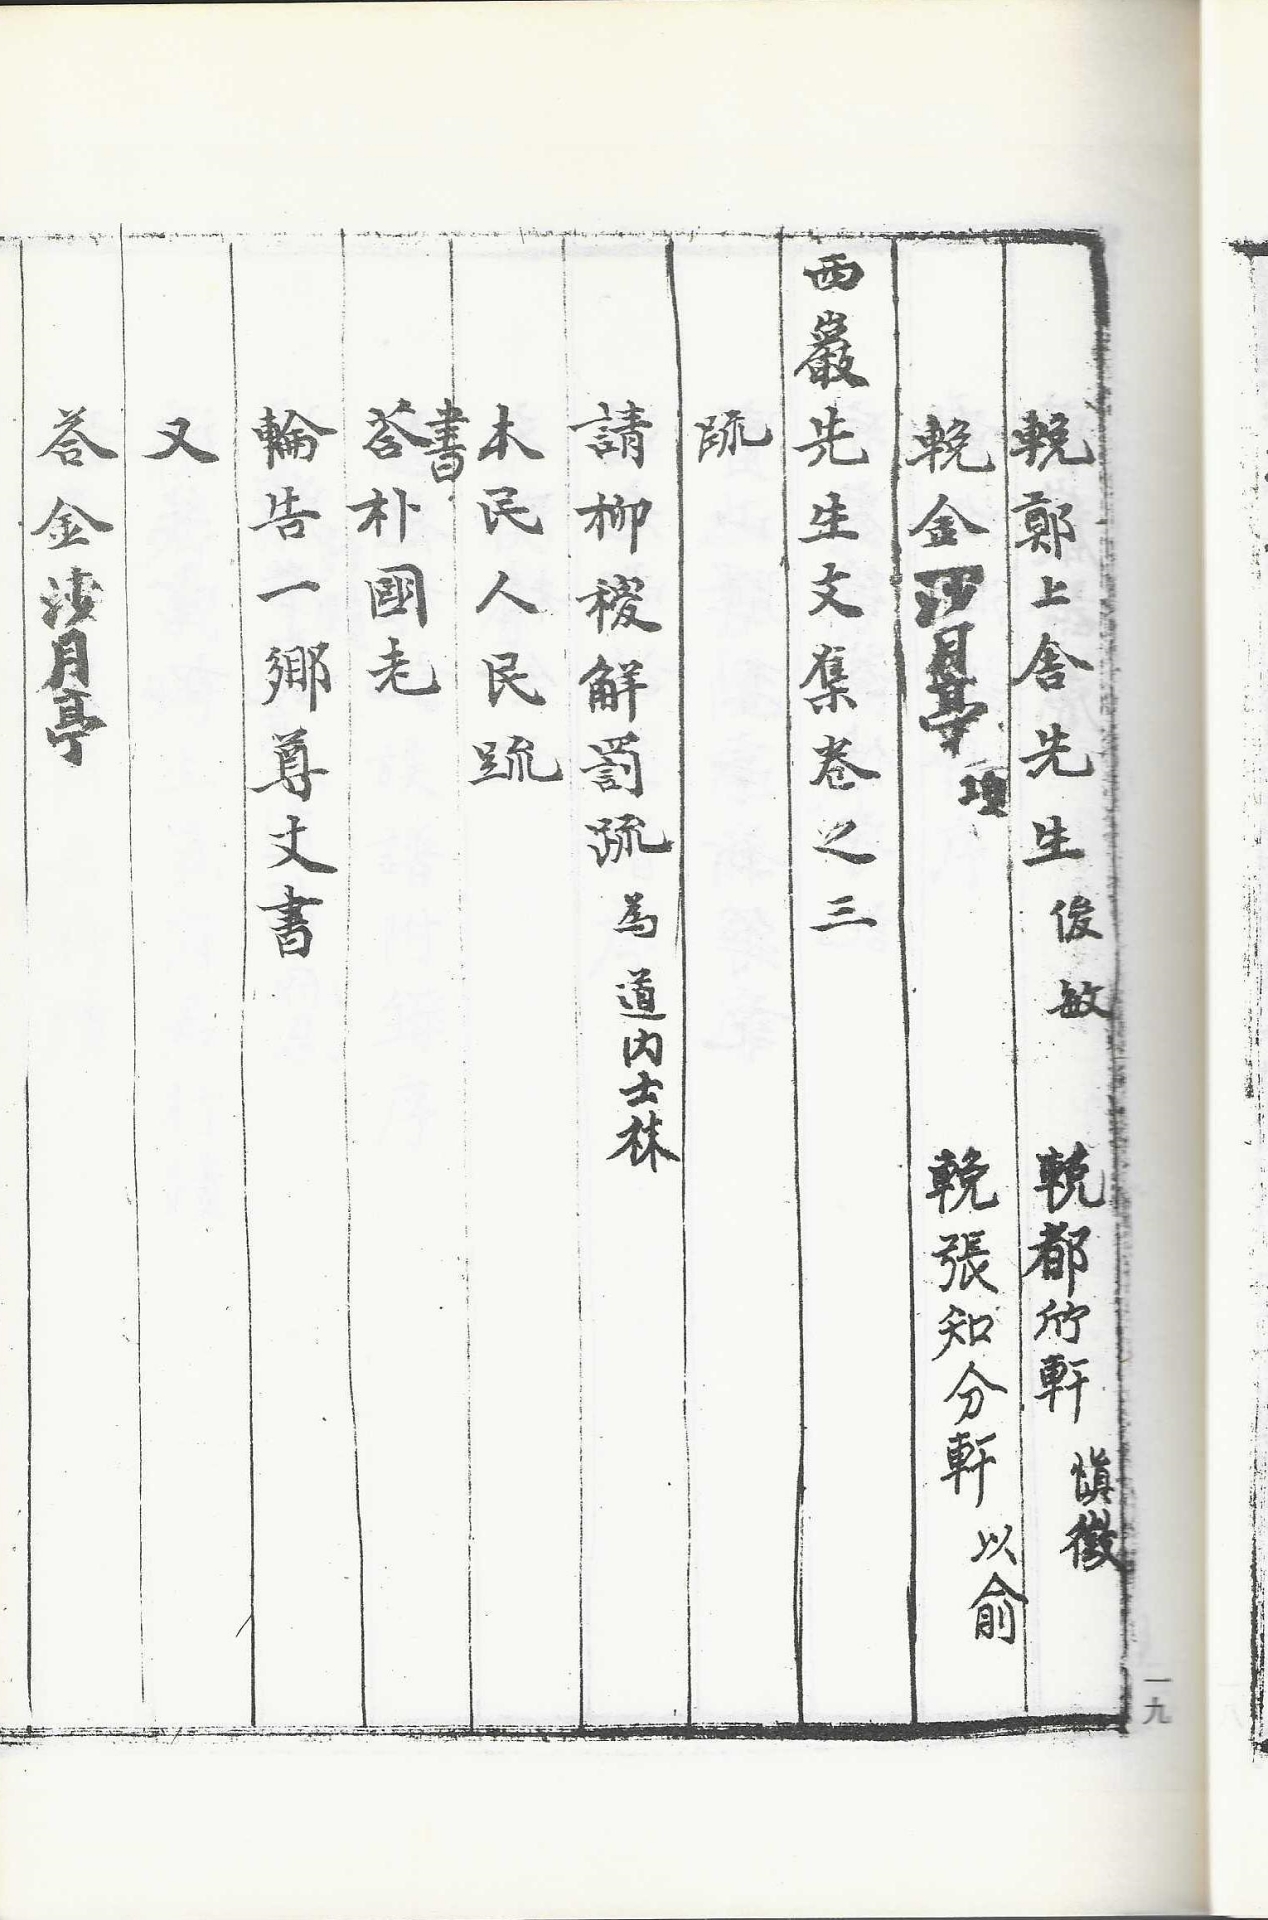 輓鄭上舍先生 俊敏 輓都竹軒 愼徵
輓金沙月亭 㙽 輓張知分軒 以俞
西巖先生文集卷之三
疏
請柳稷解罰疏 為道內士林
本民人民疏
書
答朴國老
輪告一鄉尊丈書
又
答金沙月亭
一九